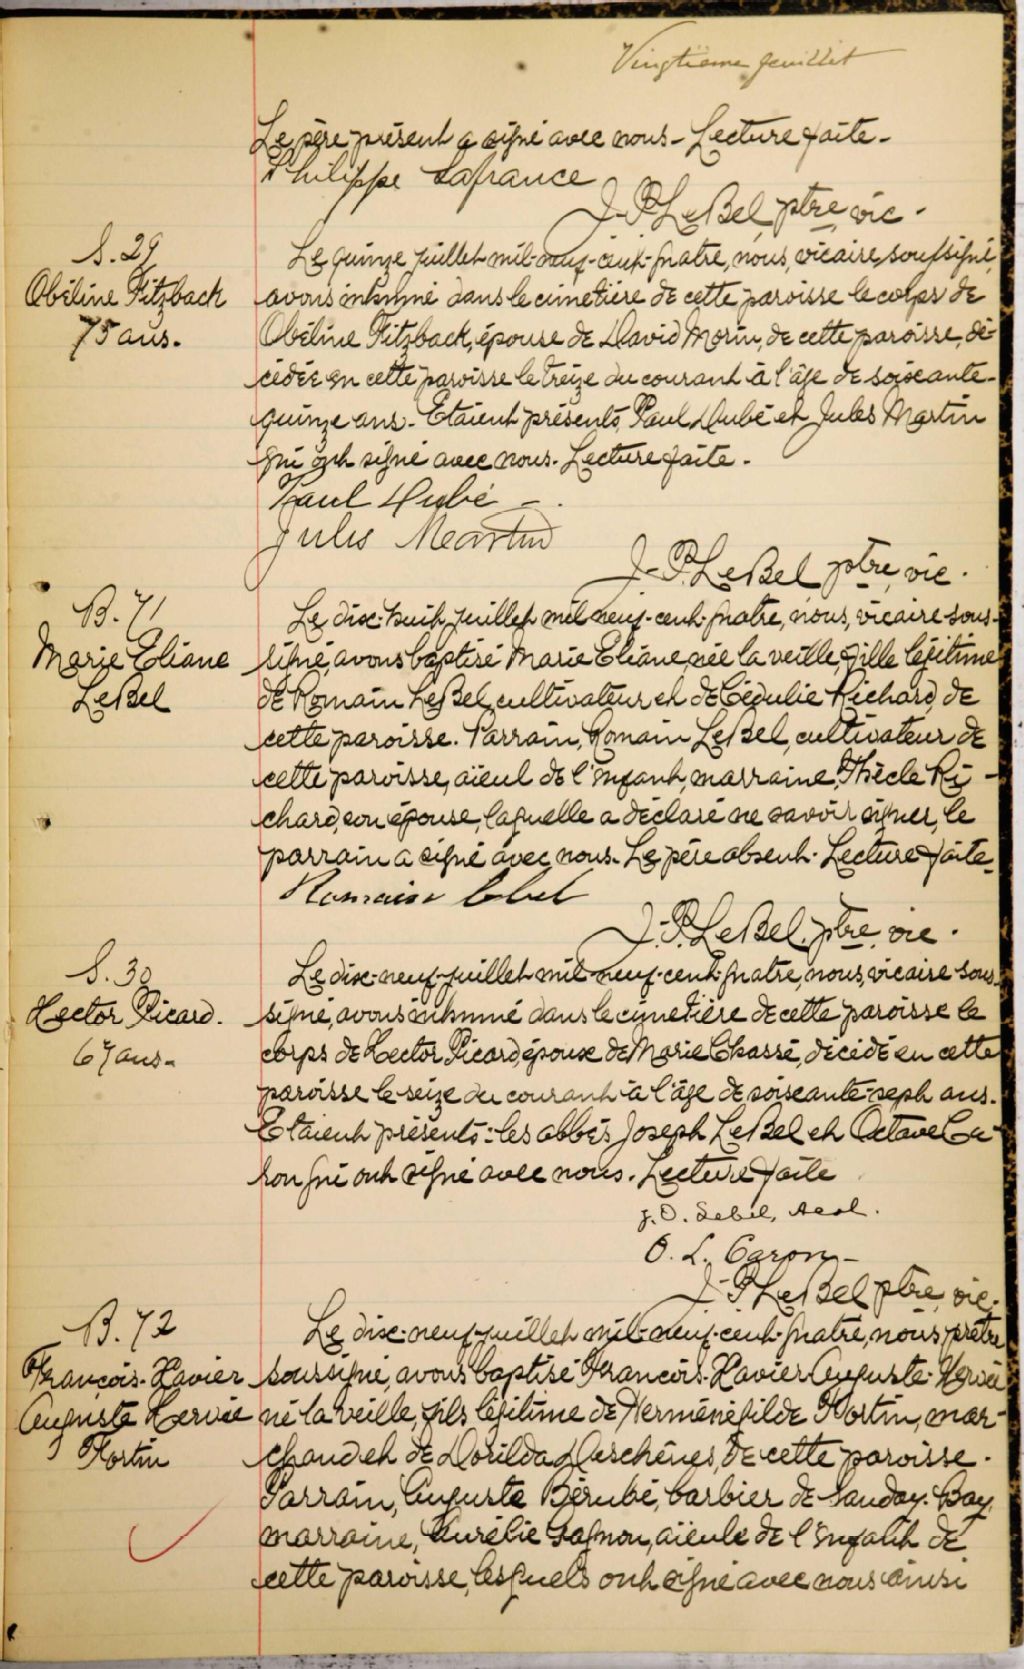 Vingtième feuillet
Le père présent a signé avec nous - Lecture faite -
Philippe Lafrance
J. P. LeBel, ptre, vic.
S. 29
Obéline Fitzback
75 ans.
Le quinze juillet mil-neuf-cent-quatre, nous, vicaire soussigné,
avons inhumé dans le cimetière de cette paroisse le corps de
Obéline Fitzback, épouse de David Morin, de cette paroisse, dé-
cédée en cette paroisse le treize du courant à l'âge de soixante-
quinze ans. Étaient présents Paul Dubé et Jules Martin
qui ont signé avec nous. Lecture faite.
Paul Dubé
Jules Martin
J. P. LeBel ptre, vic.
B. 71
Marie Eliane
LeBel
Le dix-huit juillet mil neuf-cent-quatre, nous, vicaire sous-
signé, avons baptisé Marie Eliane, née la veille, fille légitime
de Romain LeBel, cultivateur et de Cédulie Richard, de
cette paroisse. Parrain, Romain LeBel, cultivateur de
cette paroisse, aïeul de l'enfant, marraine, Thècle Ri-
chard, son épouse, laquelle a déclaré ne savoir signer, le
parrain a signé avec nous. Le père absent. Lecture faite.
Romain lebel
J. P. LeBel, ptre, vic.
S. 30
Hector Picard.
67 ans -
Le dix-neuf juillet mil neuf-cent-quatre, nous, vicaire sous-
signé, avons inhumé dans le cimetière de cette paroisse le
corps de Hector Picard, époux de Marie Chassé, décédé en cette
paroisse le seize du courant à l'âge de soixante-sept ans.
Étaient présents: les abbés Joseph LeBel et Octave Ca-
ron qui ont signé avec nous. Lecture faite
J. O. Lebel, Accl.
O. L. Caron -
J. P. LeBel ptre, vic.
B. 72
François-Xavier
Auguste Hervée
Fortin
Le dix-neuf juillet mil-neuf-cent-quatre, nous, prêtre
soussigné, avons baptisé François-Xavier-Auguste-Hervée
né la veille, fils légitime de Herménégilde Fortin, mar-
chand et de Dorilda Deschênes, de cette paroisse.
Parrain, Auguste Bérubé, barbier de Sanday-Bay,
marraine, Aurélie Gagnon, aïeule de l'enfant de
cette paroisse, lesquels ont signé avec nous ainsi